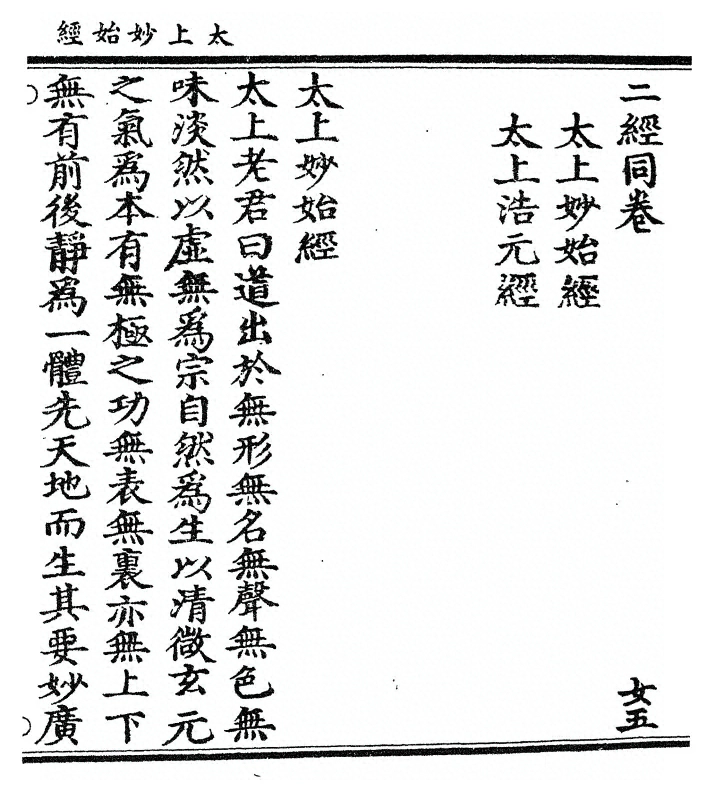 太上妙始經
二經同卷 女五
太上妙始經
太上浩元經
太上妙始經
太上老君曰道出於無形無名無聲無色無
味淡然以虛無爲宗自然爲生以清微玄元
之氣爲本有無極之功無表無裏亦無上下
無有前後靜爲一體先天地而生其要妙廣